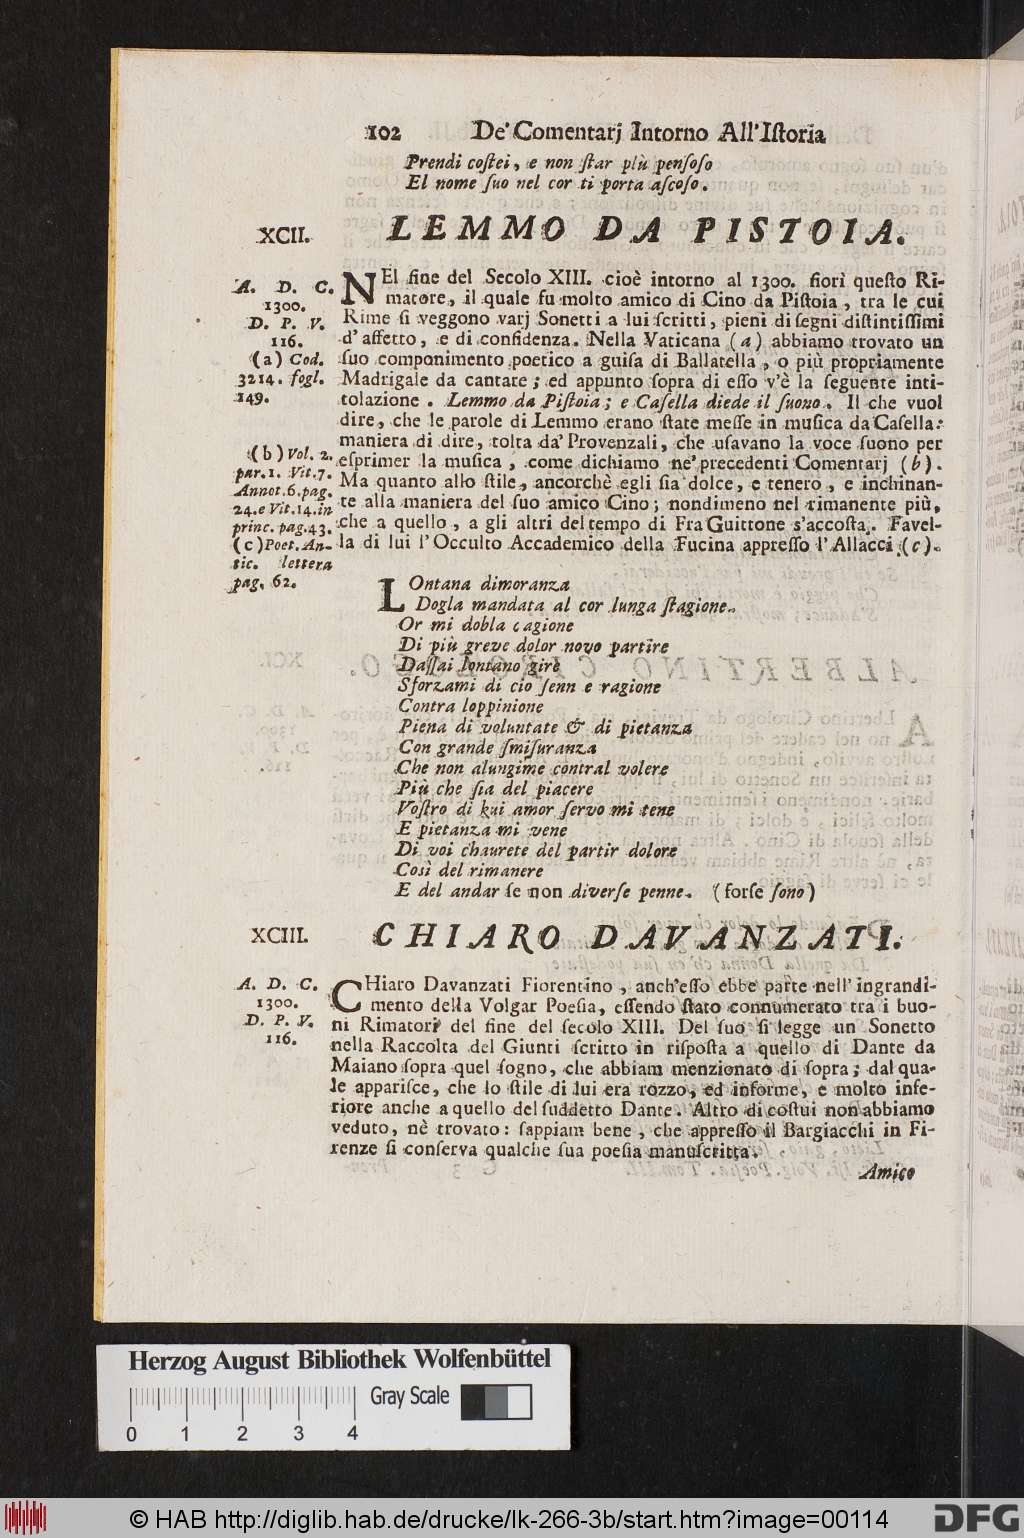 102 De' Comentarj Intorno All'Iſtoria
Prendi coſtei, e non ſtar più penſoſo
El nome ſuo nel cor ti porta aſcoſo.
XCII. LEMMO DA PISTOIA.
A. D. C.
1300.
D. P. V.
116.
(a) Cod.
3214. fogl.
149.
NEl fine del Secolo XIII. cioè intorno al 1300. fiorì queſto Ri-
matore, il quale fu molto amico di Cino da Piſtoia, tra le cui
Rime ſi veggono varj Sonetti a lui ſcritti, pieni di ſegni diſtintiſſimi
d'affetto, e di confidenza. Nella Vaticana (a) abbiamo trovato un
ſuo componimento poetico a guiſa di Ballatella, o più propriamente
Madrigale da cantare; ed appunto ſopra di eſſo v'è la ſeguente inti-
tolazione. Lemmo da Piſtoia; e Caſella diede il ſuono. Il che vuol
dire, che le parole di Lemmo erano ſtate meſſe in muſica da Caſella:
maniera di dire, tolta da' Provenzali, che uſavano la voce ſuono per
eſprimer la muſica, come dichiamo ne' precedenti Comentarj (b).
Ma quanto allo ſtile, ancorchè egli ſia dolce, e tenero, e inchinan-
te alla maniera del ſuo amico Cino; nondimeno nel rimanente più,
che a quello, a gli altri del tempo di Fra Guittone s'accoſta. Favel-
la di lui l'Occulto Accademico della Fucina appreſſo l'Allacci (c).
(b) Vol. 2.
par. 1. Vit. 7.
Annot. 6. pag.
24. e Vit. 14. in
princ. pag. 43.
(c) Poet. An-
tic. lettera
pag. 62.
LOntana dimoranza
Dogla mandata al cor lunga ſtagione.
Or mi dobla cagione
Di più greve dolor novo partire
Daſſai lontano gire
Sforzami di cio ſenn e ragione
Contra loppinione
Piena di voluntate & di pietanza
Con grande ſmiſuranza
Che non alungime contral volere
Più che ſia del piacere
Voſtro di kui amor ſervo mi tene
E pietanza mi vene
Di voi chaurete del partir dolore
Così del rimanere
E del andar ſe non diverſe penne. (forſe ſono)
XCIII. CHIARO DAVANZATI.
A. D. C.
1300.
D. P. V.
116.
CHiaro Davanzati Fiorentino, anch'eſſo ebbe parte nell'ingrandi-
mento della Volgar Poeſia, eſſendo ſtato connumerato tra i buo-
ni Rimatori del fine del ſecolo XIII. Del ſuo ſi legge un Sonetto
nella Raccolta del Giunti ſcritto in riſpoſta a quello di Dante da
Maiano ſopra quel ſogno, che abbiam menzionato di ſopra; dal qua-
le appariſce, che lo ſtile di lui era rozzo, ed informe, e molto infe-
riore anche a quello del ſuddetto Dante. Altro di coſtui non abbiamo
veduto, nè trovato: ſappiam bene, che appreſſo il Bargiacchi in Fi-
renze ſi conſerva qualche ſua poeſia manuſcritta.
Amico
Herzog August Bibliothek Wolfenbüttel
Gray Scale
0 1 2 3 4
© HAB http://diglib.hab.de/drucke/lk-266-3b/start.htm?image=00114
DFG